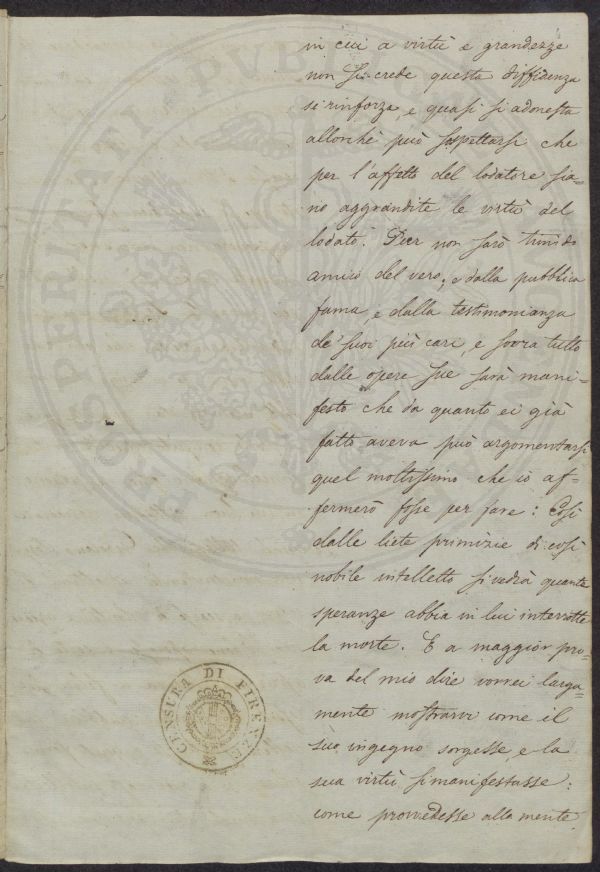 in cui a virtù e grandezze
non si crede questa diffidenza
si rinforza, e quasi si adonesta
allorchè può sospettarsi che
per l'affetto del lodatore sia=
no aggrandite le virtù del
lodato. Pur non sarò timido
amico del vero, e dalla pubblica
fama, e dalla testimonianza
de' suoi più cari, e sovra tutto
dalle opere sue sarà mani=
festo che da quanto ei già
fatto aveva può argomentarsi
quel moltissimo che io af=
fermerò fosse per fare: Così
dalle liete primizie di così
nobile intelletto si vedrà quante
speranze abbia in lui interrotte
la morte. E a maggior pro=
va del mio dire vorrei larga=
mente mostrarvi come il
suo ingegno sorgesse, e la
sua virtù si manifestasse:
come provvedesse alla mente
CENSURA DI FIRENZE
PROSPERITATI PUBLICAE